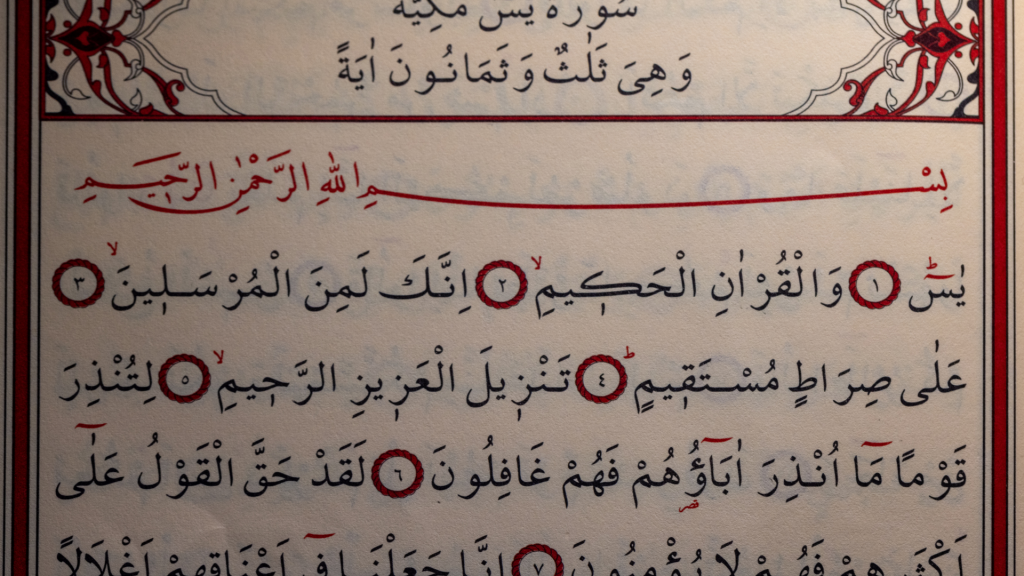 سُورَةُ يٰسٓ مَكِّيَّةٌ
وَهِىَ ثَلٰثٌ وَثَمَانُونَ اٰيَةً
بِسْمِ اللّٰهِ الرَّحْمٰنِ الرَّحٖيمِ
يٰسٓۜ ﴿١﴾ وَالْقُرْاٰنِ الْحَكٖيمِۙ ﴿٢﴾ اِنَّكَ لَمِنَ الْمُرْسَلٖينَۙ ﴿٣﴾
عَلٰى صِرَاطٍ مُسْتَقٖيمٍۜ ﴿٤﴾ تَنْزٖيلَ الْعَزٖيزِ الرَّحٖيمِۙ ﴿٥﴾ لِتُنْذِرَ
قَوْمًا مَٓا اُنْذِرَ اٰبَٓاؤُ۬هُمْ فَهُمْ غَافِلُونَ ﴿٦﴾ لَقَدْ حَقَّ الْقَوْلُ عَلٰٓى
اَكْثَرِهِمْ فَهُمْ لَا يُؤْمِنُونَ ﴿٧﴾ اِنَّا جَعَلْنَا فٖٓى اَعْنَاقِهِمْ اَغْلَالًا